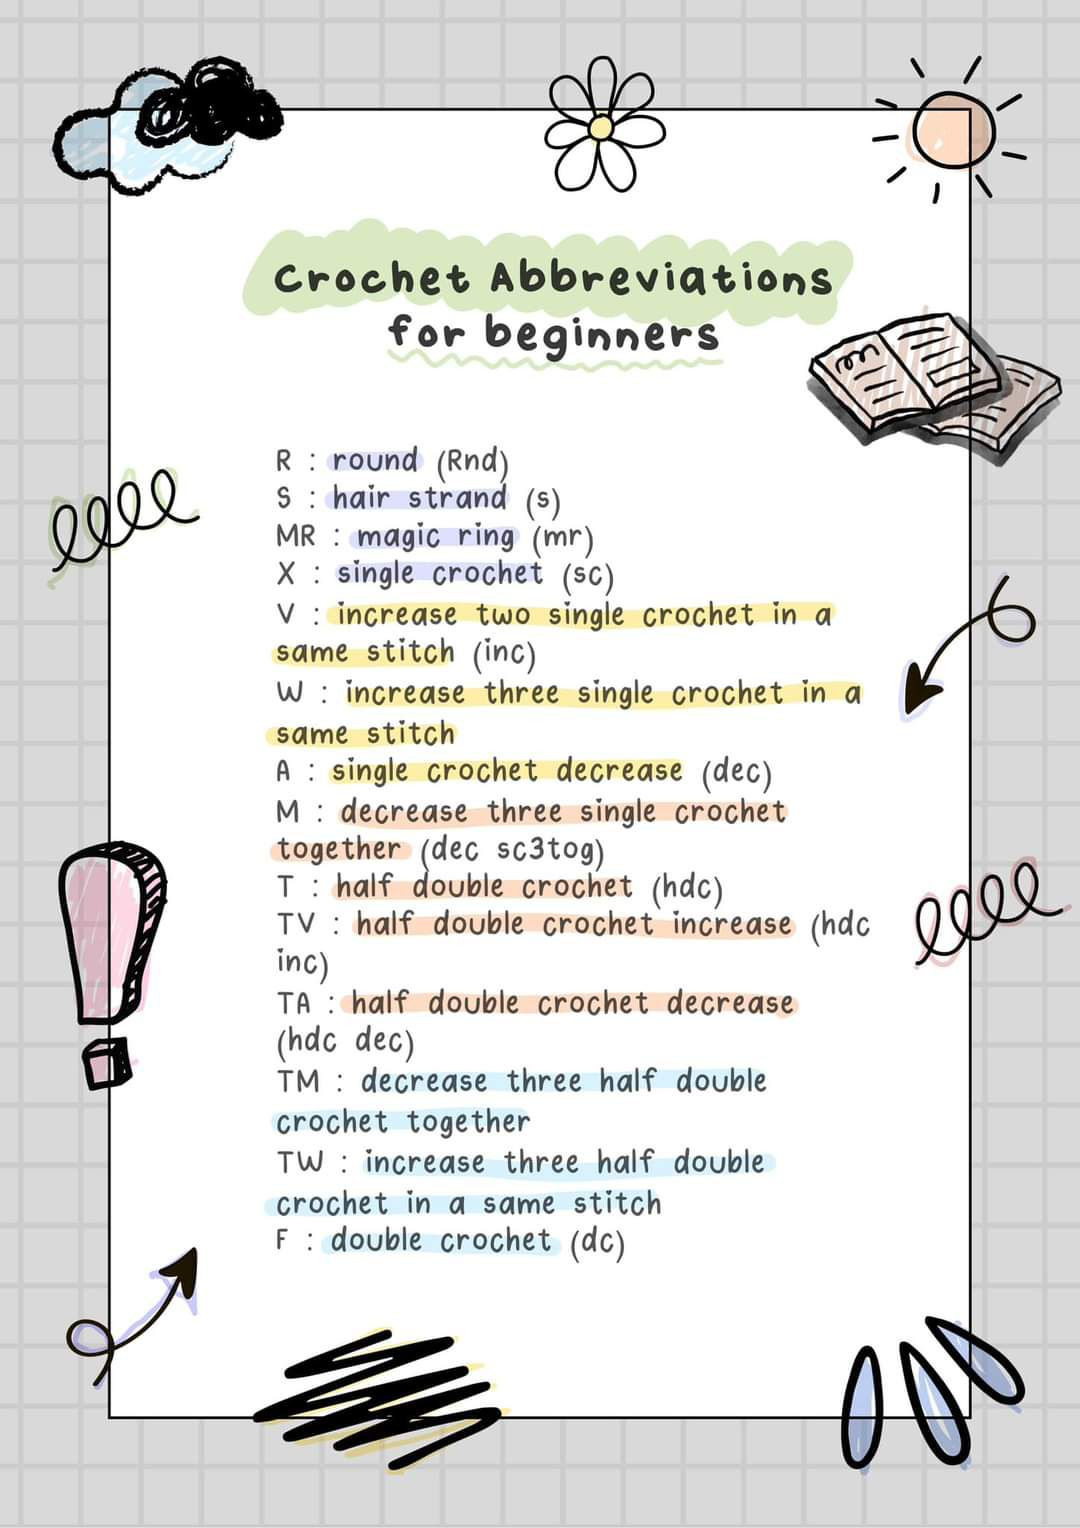 Crochet Abbreviations
for beginners
R : round (Rnd)
S : hair strand (s)
MR : magic ring (mr)
X : single crochet (sc)
V : increase two single crochet in a
same stitch (inc)
W : increase three single crochet in a
same stitch
A : single crochet decrease (dec)
M : decrease three single crochet
together (dec sc3tog)
T : half double crochet (hdc)
TV : half double crochet increase (hdc
inc)
TA : half double crochet decrease
(hdc dec)
TM : decrease three half double
crochet together
TW : increase three half double
crochet in a same stitch
F : double crochet (dc)